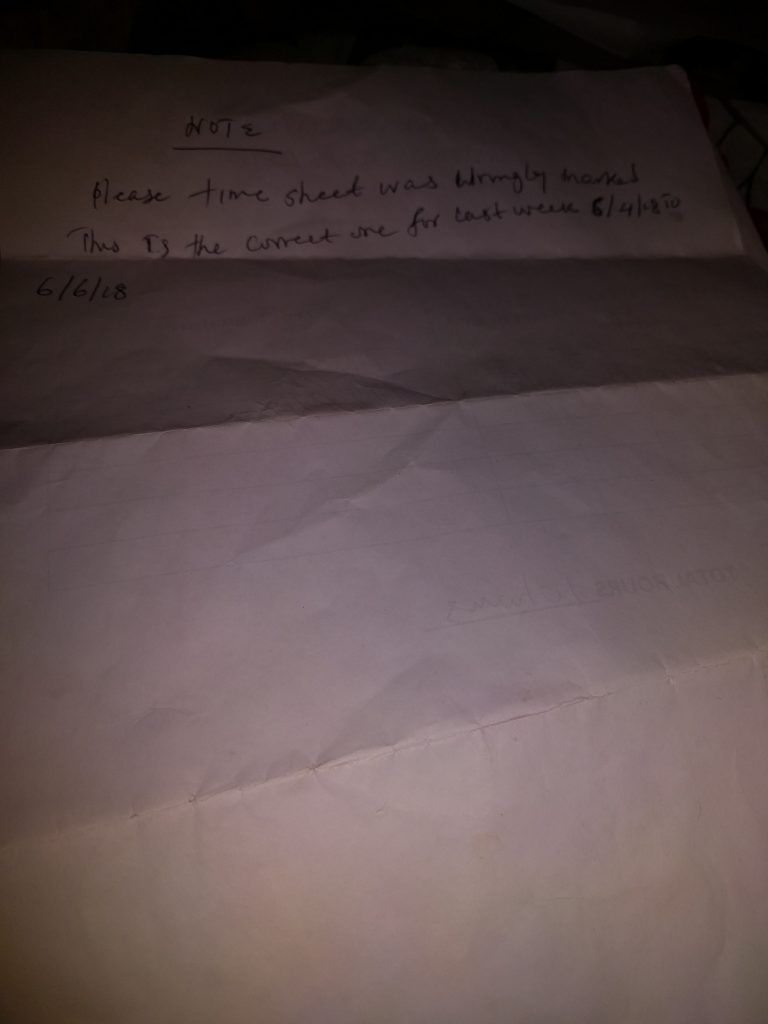 NOTE
Please time sheet was wrongly marked
This Is the correct one for last week 6/4/18 to
6/6/18
TOTAL HOURS